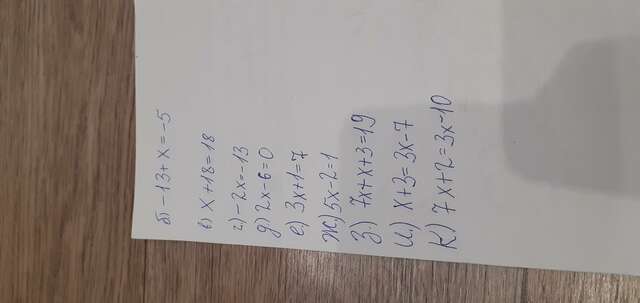 б) -13+x=-5
в) x+18=18
г) -2x=-13
д) 2x-6=0
е) 3x+1=7
ж) 5x-2=1
з.) 7x+x+3=19
и) x+3=3x-7
к) 7x+2=3x-10